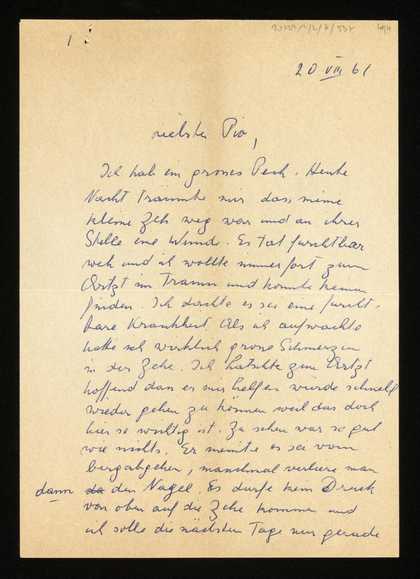 1
20 VIII 61
Liebster Pio,
Ich hab ein grosses Pech. Heute
Nacht träumte mir dass meine
kleine Zeh weg war und an ihrer
Stelle eine Wunde. Es tat furchtbar
weh und ich wollte immerfort zum
Artzt im Traum und konnte keinen
finden. Ich dachte es sei eine furcht-
bare Krankheit. Als ich aufwachte
hatte ich wirklich grosse Schmerzen
in der Zehe. Ich hatschte zum Artzt
hoffend dass er mir helfen würde schnell
wieder gehen zu können weil das doch
hier so wichtig ist. Zu sehen war so gut
wie nichts. Er meinte es sei vom
bergabgehen, manchmal verliere man
dann den Nagel. Es dürfe kein Druck
von oben auf die Zehe kommen und
ich solle die nächsten Tage nur gerade